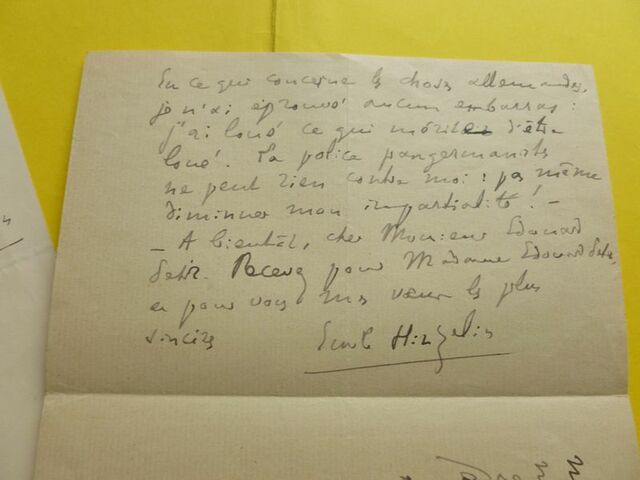 En ce qui concerne les choses allemandes,
je n'ai éprouvé aucun embarras :
j'ai loué ce qui mérite d'être
loué. La police pangermaniste
ne peut rien contre moi : pas même
diminuer mon impartialité ! -
- A bientôt, cher Monsieur Edouard
Recevez pour Madame Edouard
et pour vous mes vœux les plus
sincères
Emile Hinzelin